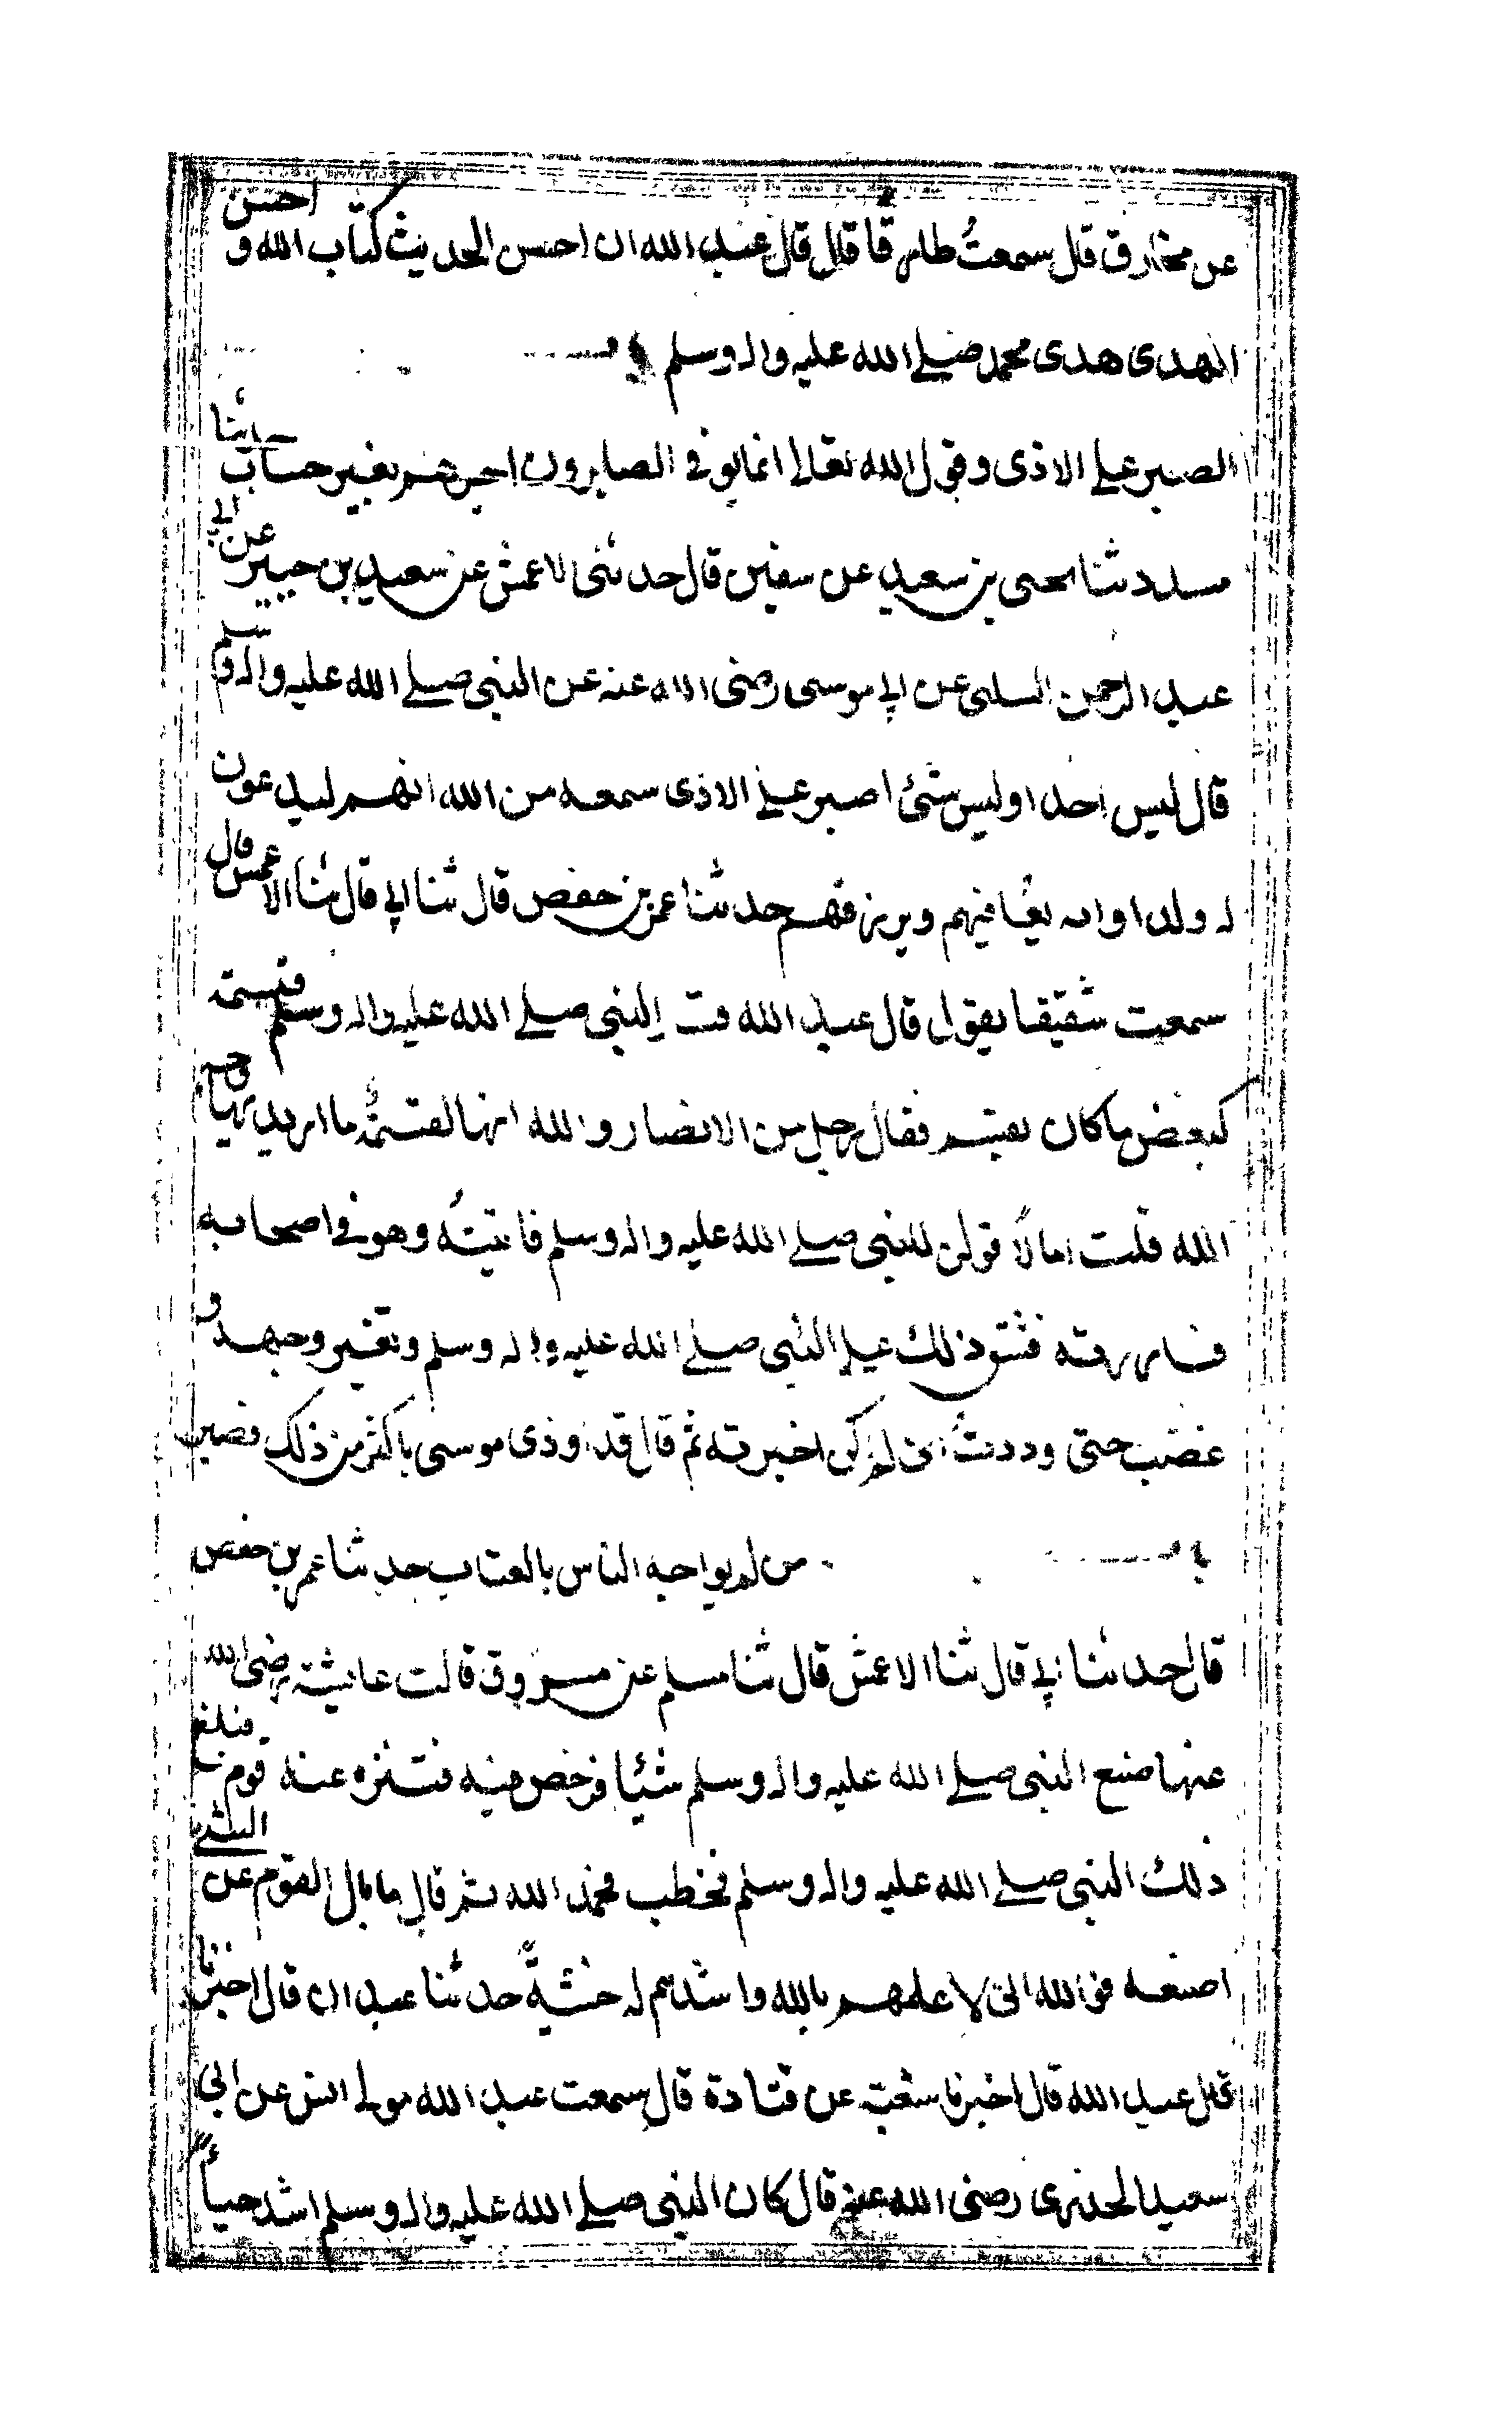 عن مخارق قال سمعت طارقا قال قال عبد الله ان احسن الحديث كتاب الله و احسن
الهدى هدى محمد صلى الله عليه واله وسلم باب
الصبر على الاذى وقول الله تعالى انما يوفى الصابرون اجرهم بغير حساب حدثنا
مسدد ثنا يحيى بن سعيد عن سفين قال حدثنى الاعمش عن سعيد بن جبير عن ابى
عبد الرحمن السلمى عن ابى موسى رضى الله عنه عن النبى صلى الله عليه واله وسلم
قال ليس احد او ليس شئ اصبر على الاذى سمعه من الله انهم ليدعون
له ولدا وانه يعافيهم ويرزقهم حدثنا عمر بن حفص قال ثنا ابى قال ثنا الاعمش قال
سمعت شقيقا يقول قال عبد الله قسم النبى صلى الله عليه واله وسلم قسمة
كبعض ما كان يقسم فقال رجل من الانصار والله انها لقسمة ما اريد بها وجه
الله قلت اما لاقولن للنبى صلى الله عليه واله وسلم فاتيته وهو فى اصحابه
فساررته فشق ذلك على النبى صلى الله عليه واله وسلم وتغير وجهه و
غضب حتى وددت انى لم اكن اخبرته ثم قال قد اوذى موسى باكثر من ذلك فصبر
باب من لم يواجه الناس بالعتاب حدثنا عمر بن حفص
قال حدثنا ابى قال ثنا الاعمش قال ثنا مسلم عن مسروق قالت عائشة رضى الله
عنها صنع النبى صلى الله عليه واله وسلم شيئا فرخص فيه فتنزه عنه قوم فبلغ
ذلك النبى صلى الله عليه واله وسلم فخطب فحمد الله ثم قال ما بال القوم عن الشئ
اصنعه فوالله انى لاعلمهم بالله واشدهم له خشية حدثنا عبدان قال اخبرنا
قال عبد الله قال اخبرنا شعبة عن قتادة قال سمعت عبد الله مولى انس عن ابى
سعيد الخدرى رضى الله عنه قال كان النبى صلى الله عليه واله وسلم اشد حياءً